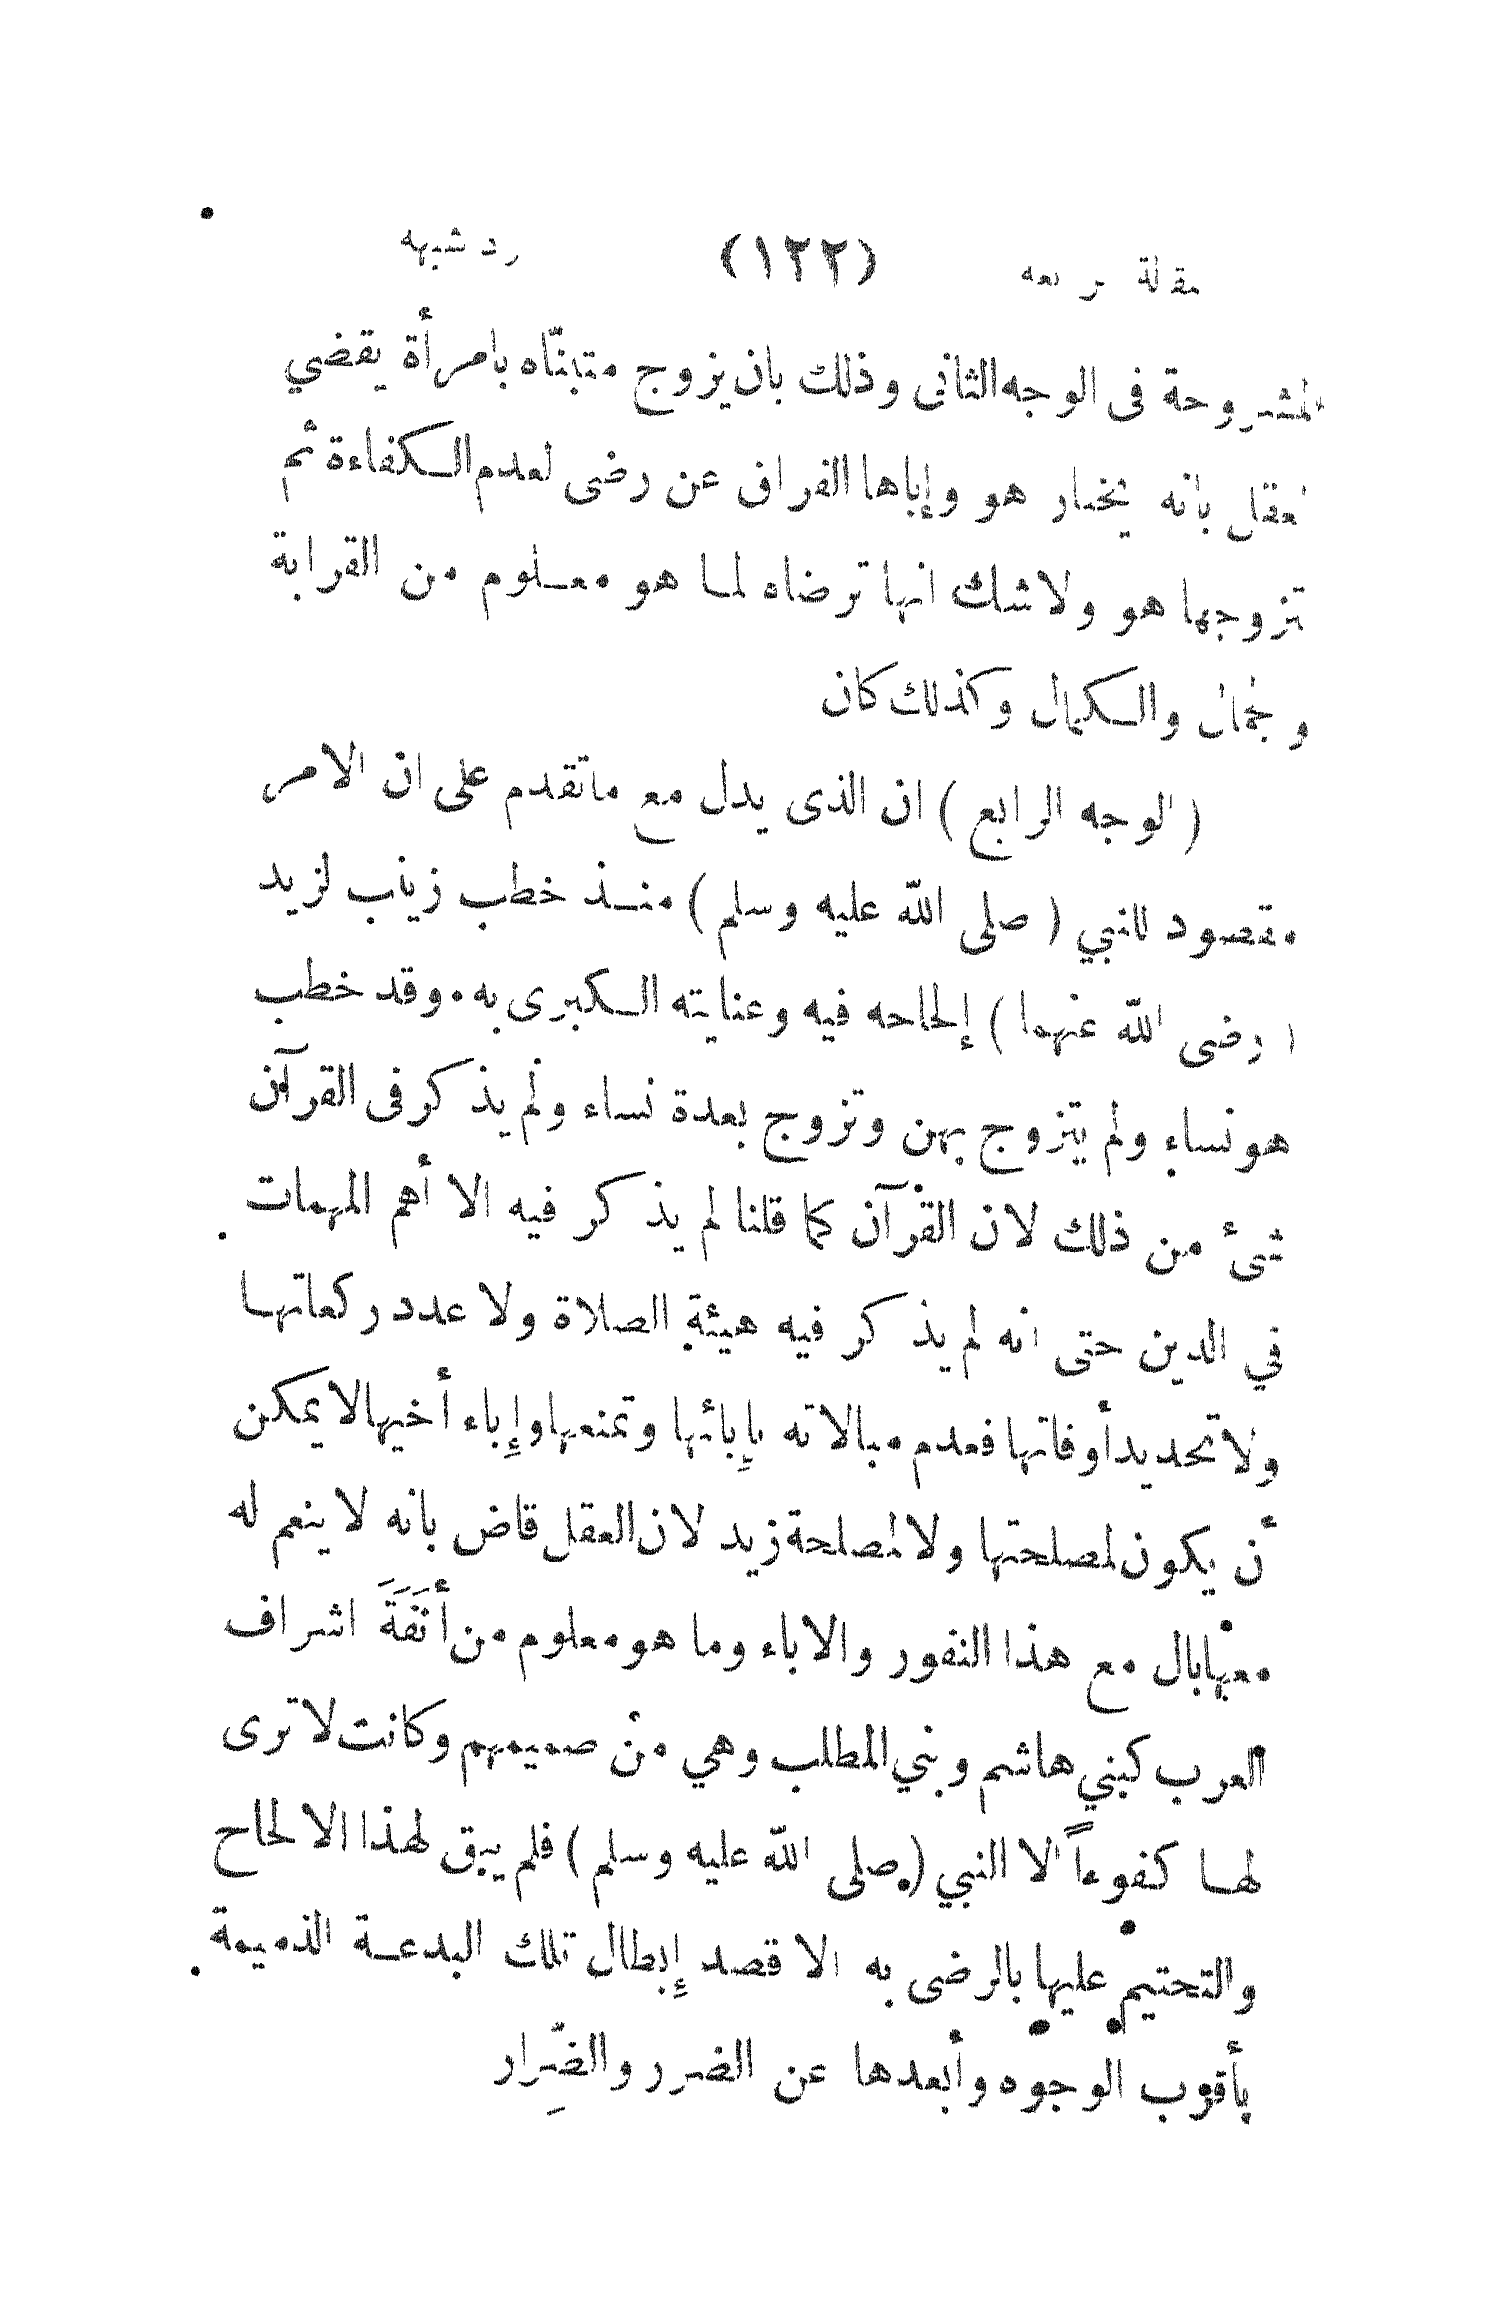 مقالة (١٢٢) رد شبهه
المشروحة فى الوجه الثانى وذلك بان يزوج متبنّاه بامرأة يقضي
العقل بانه يختار هو وإياها الفراق عن رضى لعدم الكفاءة ثم
تزوجها هو ولا شك انها ترضاه لما هو معلوم من القرابة
والجمال والكمال وكذلك كان
( الوجه الرابع ) ان الذى يدل مع ماتقدم على ان الامر
مقصود للنبي ( صلى الله عليه وسلم ) منذ خطب زينب لزيد
( رضى الله عنهما ) إلحاحه فيه وعنايته الكبرى به . وقد خطب
هو نساء ولم يتزوج بهن وتزوج بعدة نساء ولم يذكر فى القرآن
شئ من ذلك لان القرآن كما قلنا لم يذكر فيه الا أهم المهمات
في الدين حتى انه لم يذكر فيه هيئة الصلاة ولا عدد ركعاتها
ولا تحديد أوقاتها فعدم مبالاته بإبائها وتمنعها وإباء أخيها لا يمكن
أن يكون لمصلحتها ولا لمصلحة زيد لان العقل قاض بانه لا ينعم له
معها بال مع هذا النفور والاباء وما هو معلوم من أَنَفَة اشراف
العرب كبني هاشم وبني المطلب وهي من صميمهم وكانت لا ترى
لها كفوءاً الا النبي ( صلى الله عليه وسلم ) فلم يبق لهذا الالحاح
والتحتيم عليها بالرضى به الا قصد إبطال تلك البدعة الذميمة
بأقرب الوجوه وأبعدها عن الضرر والضِّرار